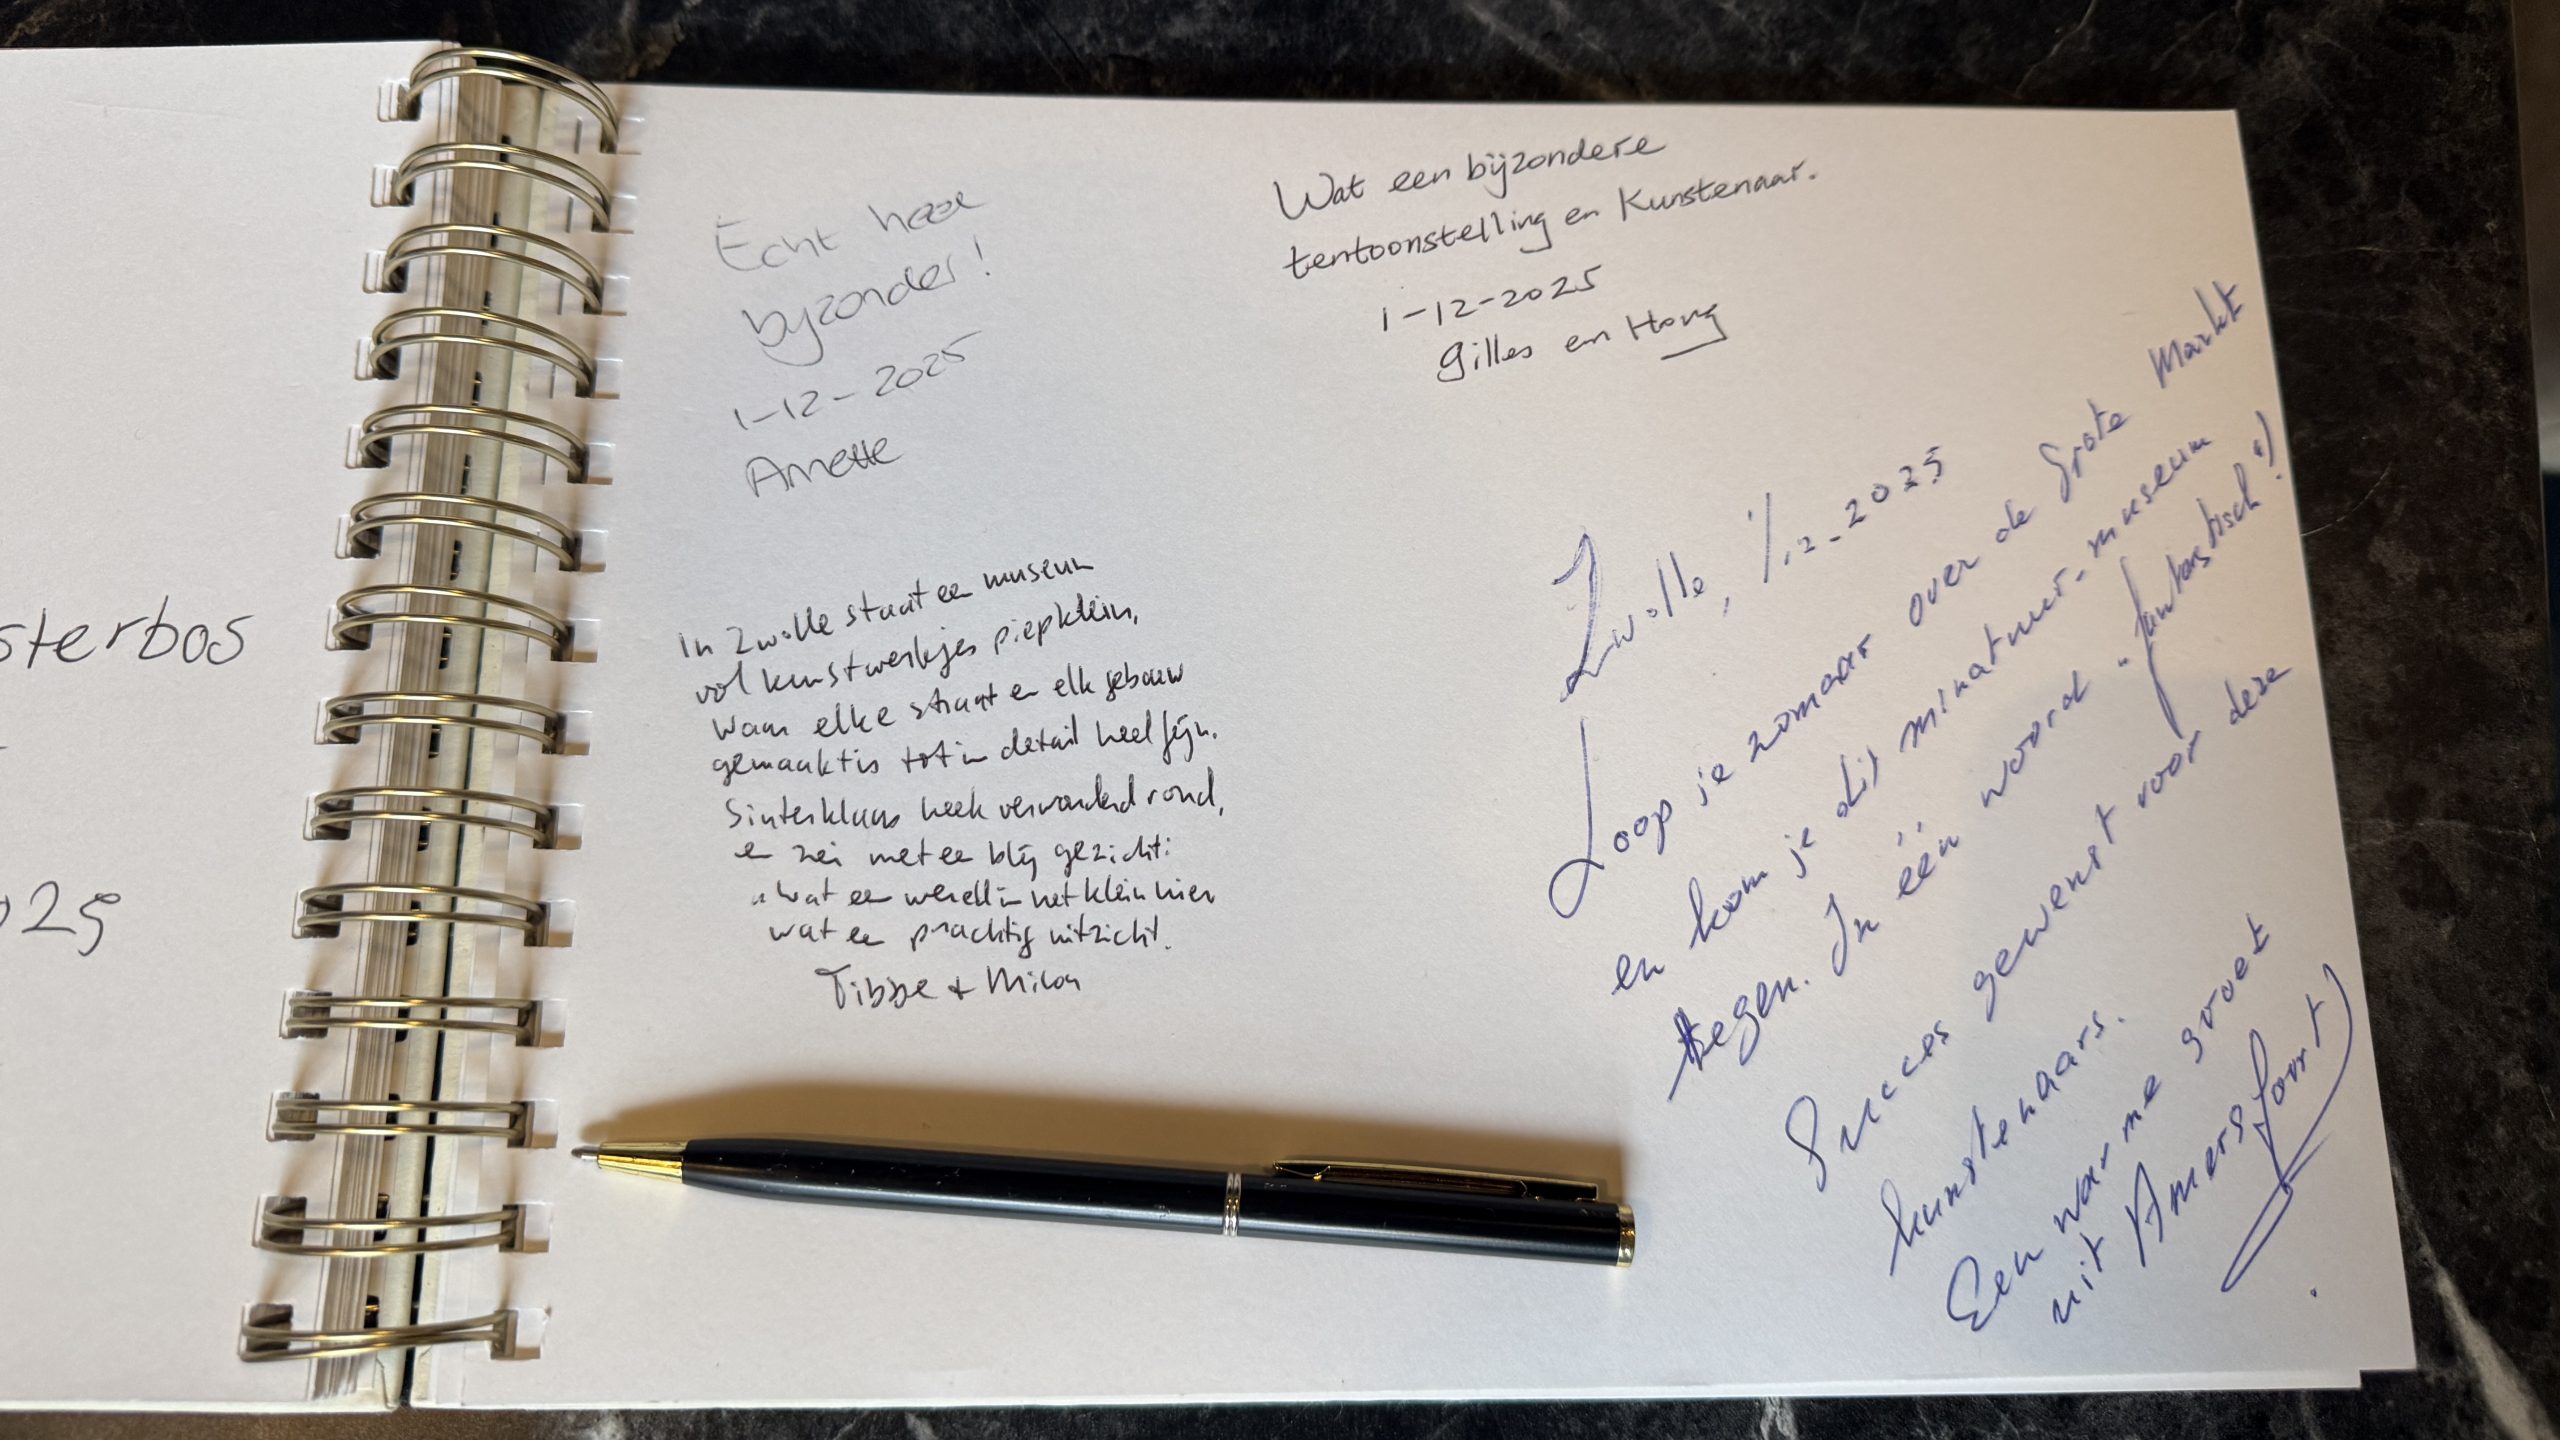 sterbos
025
Echt heel
bijzonder!
1-12-2025
Annette
Wat een bijzondere
tentoonstelling en Kunstenaar.
1-12-2025
Gilles en Hong
In Zwolle staat een museum
vol kunstwerkjes piepklein,
waar elke straat en elk gebouw
gemaakt is tot in detail heel fijn.
Sinterklaas keek verwonderd rond,
en zei met een blij gezicht:
"wat een wereld in het klein hier
wat een prachtig uitzicht.
Tibbe + Milou
Zwolle, 1/12-2025
Loop je zomaar over de Grote Markt
en kom je dit miniatuur-museum
tegen. In één woord "fantastisch"!
Succes gewenst voor deze
kunstenaars.
Een warme groet
uit Amersfoort